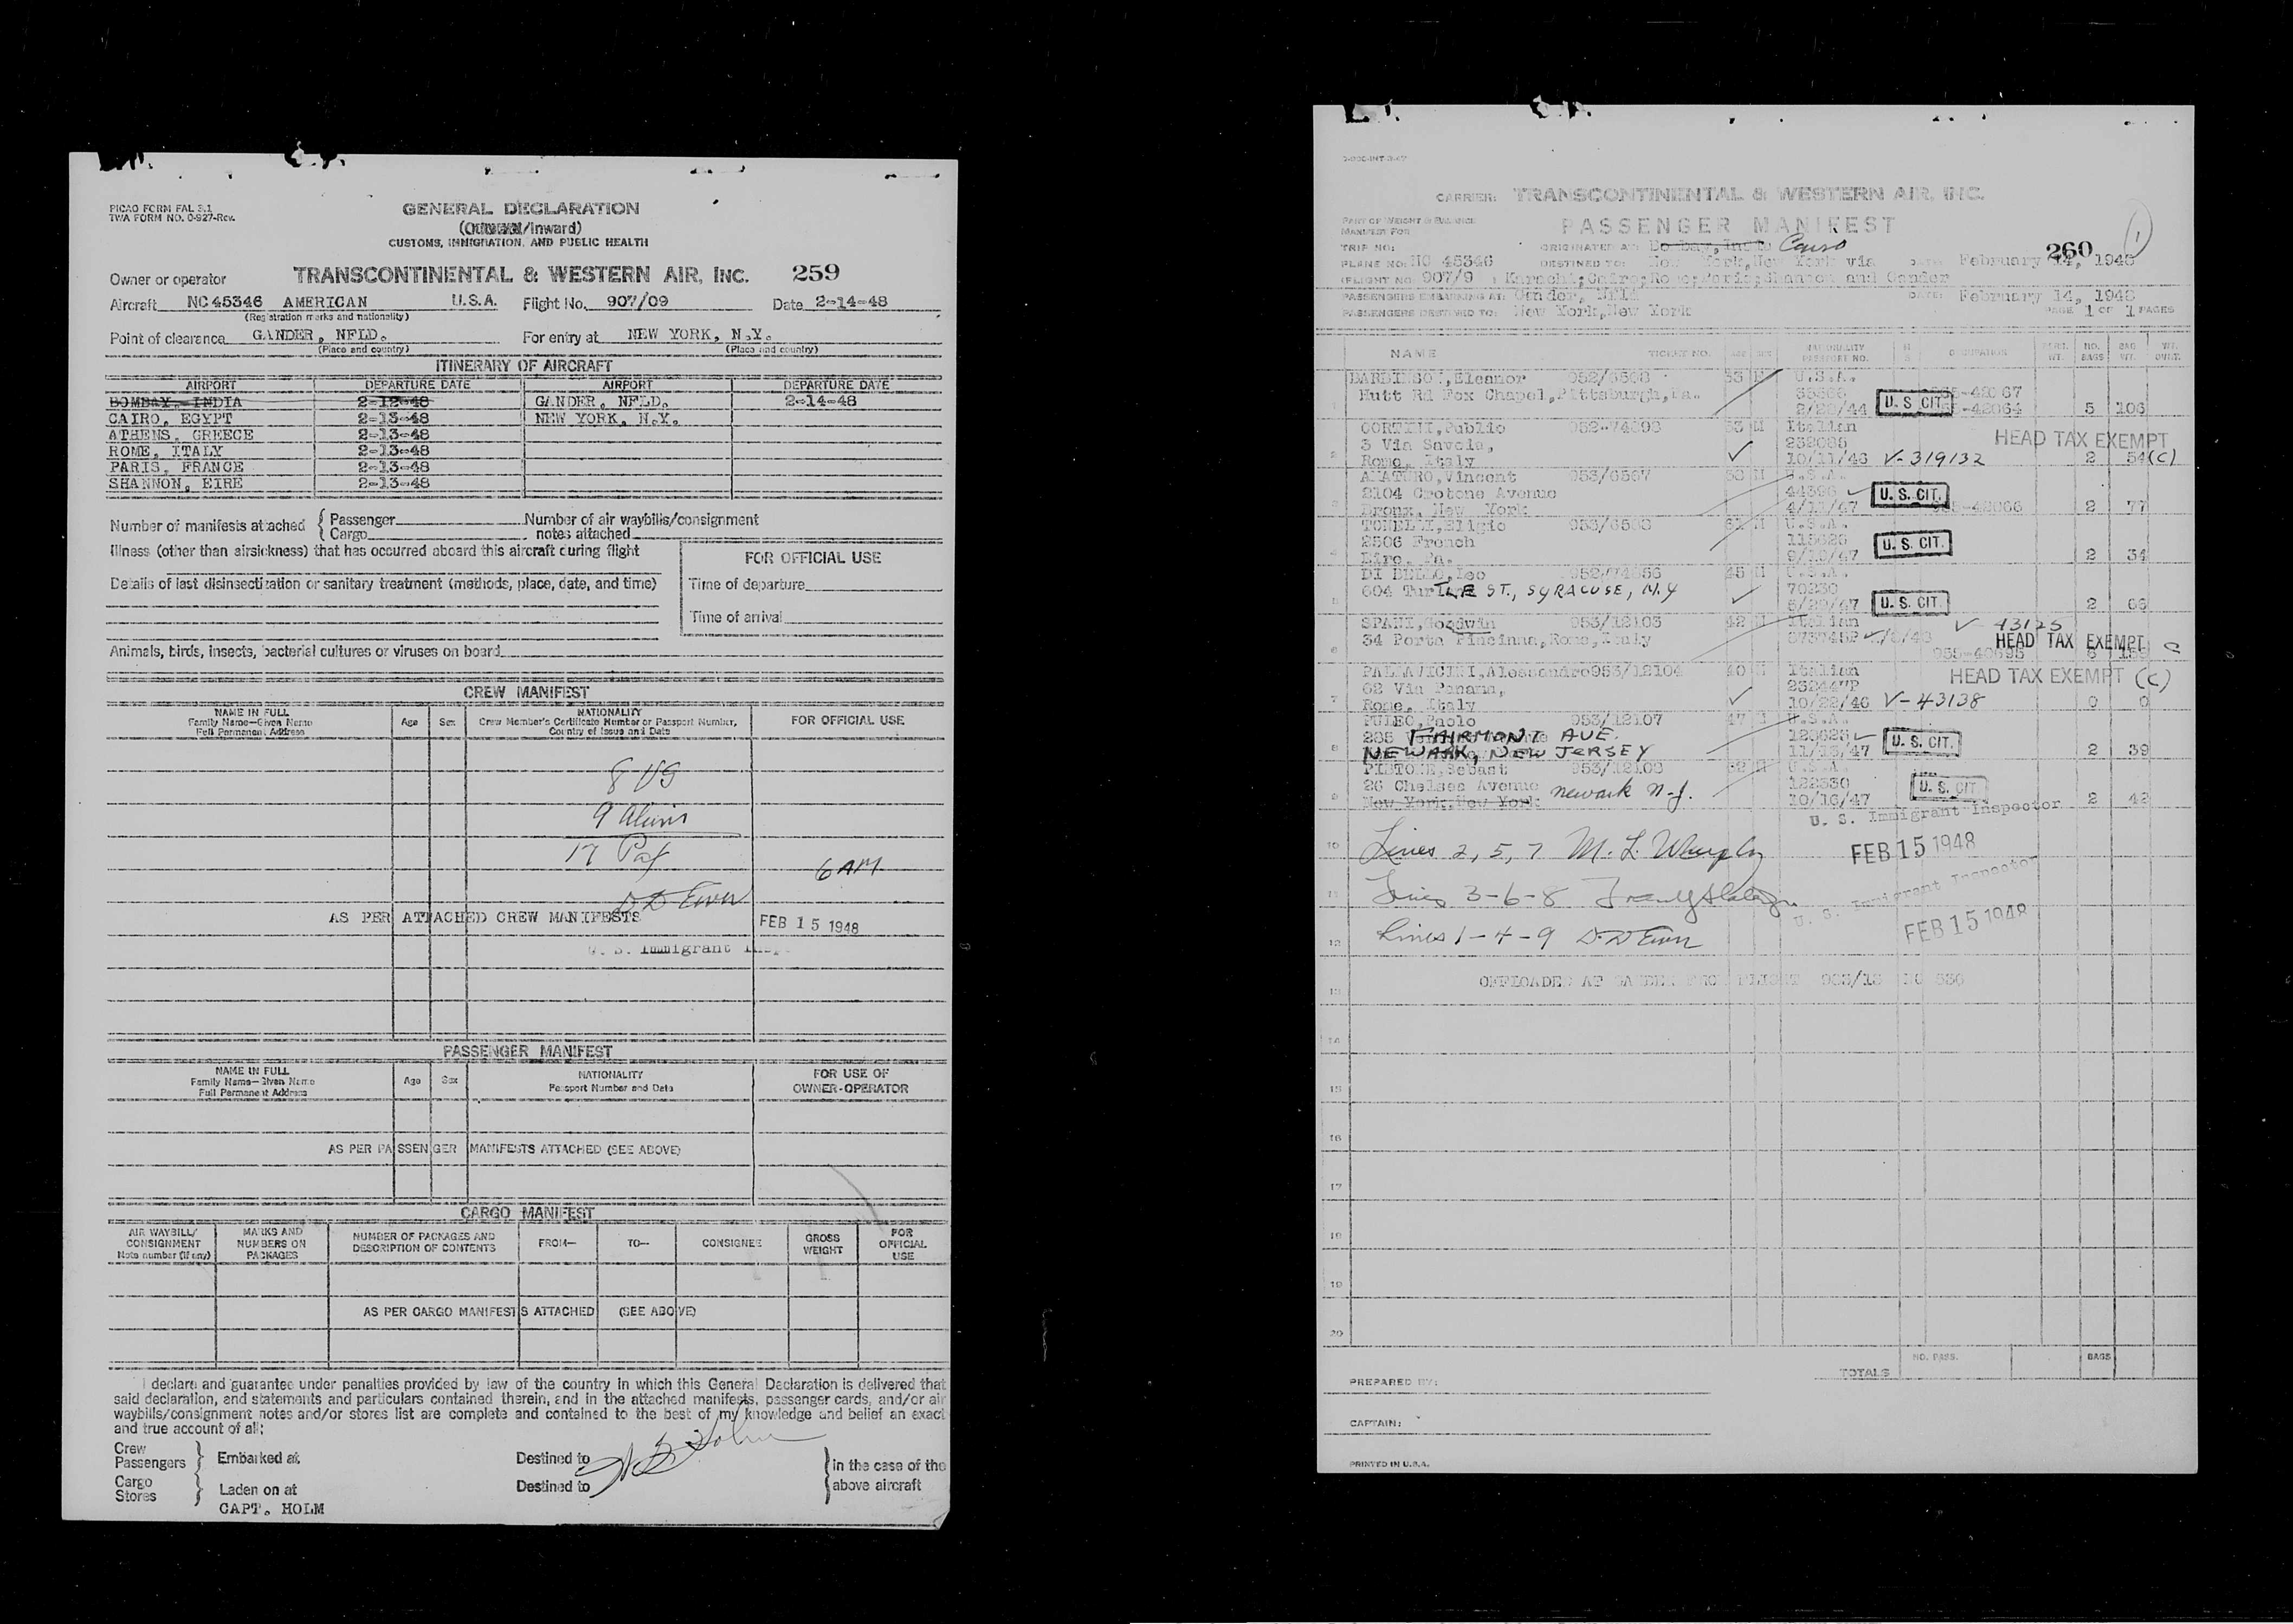 PICAO FORM FAL 3.1
TWA FORM NO. 0-927-Rev.
GENERAL DECLARATION
(Inward)
CUSTOMS, IMMIGRATION, AND PUBLIC HEALTH
Owner or operator TRANSCONTINENTAL & WESTERN AIR, INC. 259
Aircraft NC 45346 AMERICAN U.S.A. Flight No. 907/09 Date 2-14-48
(Registration marks and nationality)
Point of clearance GANDER, NFLD. For entry at NEW YORK, N.Y.
(Place and country) (Place and country)
ITINERARY OF AIRCRAFT
AIRPORT DEPARTURE DATE AIRPORT DEPARTURE DATE
BOMBAY, INDIA 2-12-48 GANDER, NFLD. 2-14-48
CAIRO, EGYPT 2-13-48 NEW YORK, N.Y.
ATHENS, GREECE 2-13-48
ROME, ITALY 2-13-48
PARIS, FRANCE 2-13-48
SHANNON, EIRE 2-13-48
Number of manifests attached { Passenger Number of air waybills/consignment
Cargo notes attached
Illness (other than airsickness) that has occurred aboard this aircraft during flight
FOR OFFICIAL USE
Details of last disinsectization or sanitary treatment (methods, place, date, and time)
Time of departure
Time of arrival
Animals, birds, insects, bacterial cultures or viruses on board
CREW MANIFEST
NAME IN FULL
Family Name—Given Name
Full Permanent Address
Age Sex
NATIONALITY
Crew Member's Certificate Number or Passport Number,
Country of Issue and Date
FOR OFFICIAL USE
8 US
9 Aliens
17 Pax
6 AM
AS PER ATTACHED CREW MANIFESTS
FEB 15 1948
U. S. Immigrant
PASSENGER MANIFEST
NAME IN FULL
Family Name—Given Name
Full Permanent Address
Age Sex
NATIONALITY
Passport Number and Date
FOR USE OF
OWNER-OPERATOR
AS PER PASSENGER MANIFESTS ATTACHED (SEE ABOVE)
CARGO MANIFEST
AIR WAYBILL/
CONSIGNMENT
Note number (if any)
MARKS AND
NUMBERS ON
PACKAGES
NUMBER OF PACKAGES AND
DESCRIPTION OF CONTENTS
FROM—
TO—
CONSIGNEE
GROSS
WEIGHT
FOR
OFFICIAL
USE
AS PER CARGO MANIFESTS ATTACHED (SEE ABOVE)
I declare and guarantee under penalties provided by law of the country in which this General Declaration is delivered that
said declaration, and statements and particulars contained therein, and in the attached manifests, passenger cards, and/or air
waybills/consignment notes and/or stores list are complete and contained to the best of my knowledge and belief an exact
and true account of all:
Crew
Passengers } Embarked at Destined to
Cargo
Stores } Laden on at Destined to
in the case of the
above aircraft
CAPT. HOLM
CARRIER: TRANSCONTINENTAL & WESTERN AIR, INC.
PART OF WEIGHT & BALANCE
MANIFEST FOR
PASSENGER MANIFEST
TRIP NO: ORIGINATED AT: Bombay, India Cairo 260 1
PLANE NO: NC 45346 DESTINED TO: New York, New York via DATE: February 14, 1948
(FLIGHT NO: 907/9 : Karachi;Cairo;Rome;Paris;Shannon and Gander
PASSENGERS EMBARKING AT: Gander, Nfld DATE: February 14, 1948
PASSENGERS DESTINED TO: New York,New York PAGE 1 OF 1 PAGES
NAME TICKET NO. AGE SEX NATIONALITY PASSPORT NO. OCCUPATION NO. BAGS BAG WT.
Eleanor U.S.A.
Hutt Rd Fox Chapel,Pittsburgh,Pa.
2/20/44 U. S. CIT. 5 106
CORTINI,Publio 53 M Italian
3 Via Savoia, HEAD TAX EXEMPT
Rome, Italy 10/11/46 V-319132 2 54 (C)
AMATURO,Vincent 953/6567 U.S.A.
2104 Crotone Avenue U. S. CIT.
Bronx, New York 4/11/47 2 77
TONELLI,Eligio U.S.A.
2506 French U. S. CIT.
9/10/47 2 34
DI BELLO,Leo 45 M U.S.A.
604 TurTLE ST., SYRACUSE, N.Y 70230
U. S. CIT. 2 66
SPANI,Goodwin 953/12103 42 M Italian V-43125
34 Porta Pinciana,Rome,Italy HEAD TAX EXEMPT C
PALLAVICINI,Alessandro 953/12104 40 M Italian HEAD TAX EXEMPT (C)
62 Via Panama,
Rome, Italy 10/22/46 V-43138 0 0
PULEO,Paolo 953/12107 47 M U.S.A.
FAIRMONT AVE.
NEWARK, NEW JERSEY 11/13/47 U. S. CIT. 2 39
PISTONE,Sebast U.S.A.
26 Chelsea Avenue newark n.j. 122330 U. S. CIT.
New York,New York 10/16/47 2 42
U. S. Immigrant Inspector
Lines 2, 5, 7
FEB 15 1948
Lines 3-6-8
U. S. Immigrant Inspector
FEB 15 1948
Lines 1-4-9
OFFLOADED AT GANDER FROM FLIGHT
10
11
12
13
14
15
16
17
18
19
20
TOTALS NO. PASS. BAGS
PREPARED BY:
CAPTAIN:
PRINTED IN U.S.A.